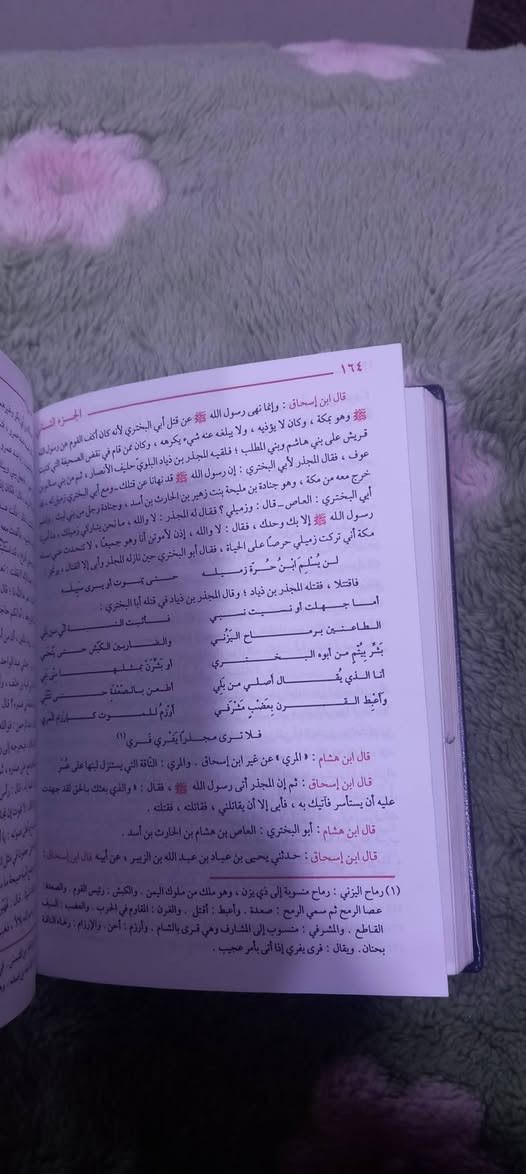 ١٦٤
الجزء
قال ابن إسحاق : وإنما نهى رسول الله ﷺ عن قتل أبي البختري لأنه كان أكف القوم عن رسول الله
ﷺ وهو بمكة ، وكان لا يؤذيه ، ولا يبلغه عنه شيء يكرهه ، وكان ممن قام في نقض الصحيفة التي كتبت
قريش على بني هاشم وبني المطلب ؛ فلقيه المجذر بن ذياد البلويّ حليف الأنصار ، ثم من بني سالم بن
عوف ، فقال المجذر لأبي البختري : إن رسول الله ﷺ قد نهانا عن قتلك ــ ومع أبي البختري زميل له
خرج معه من مكة ، وهو جنادة بن مليحة بنت زهير بن الحارث بن أسد ، وجنادة رجل من بني ليث .
أبي البختري : العاص ــ قال : وزميلي ؟ فقال له المجذر : لا والله ، ما نحن بتاركي زميلك ، ما أمرنا
رسول الله ﷺ إلا بك وحدك ، فقال : لا والله ، إذن لأموتن أنا وهو جميعًا ، لا تتحدث عني نساء
مكة أني تركت زميلي حرصًا على الحياة ، فقال أبو البختري حين نازله المجذر وأبى إلا القتال ، يرتجز
لن يُسْلِمَ ابْنُ حُرَّةٍ زميله حتى يموت أو يرى سبيله
فاقتتلا ، فقتله المجذر بن ذياد ؛ وقال المجذر بن ذياد في قتله أبا البختري :
أما جهلت أو نسيت نسبي فأثبت النسبة أني من بلي
الطاعنين برماح اليَزَني والضاربين الكبش حتى ينحني
بَشِّرْ بِيُتْمٍ من أبوه البختري أو بَشِّرَنْ بمثلها
أنا الذي يُقال أصلي من بَلِي أطعن بالصَّعْدَة حتى تنثني
وأَعْبِط القِرْن بِعَضْبٍ مَشْرَفي أُرْزِمُ للموت كإرزام المري
فلا ترى مجذرًا يَفْري فَرِي (١)
قال ابن هشام : «المري» عن غير ابن إسحاق . والمري : النَّاقة التي يستنزل لبنها على عُسْر
قال ابن إسحاق : ثم إن المجذر أتى رسول الله ﷺ ، فقال : «والذي بعثك بالحق لقد جهدت
عليه أن يستأسر فآتيك به ، فأبى إلا أن يقاتلني ، فقاتلته ، فقتلته .
قال ابن هشام : أبو البختري : العاص بن هشام بن الحارث بن أسد .
قال ابن إسحاق : حدثني يحيى بن عباد بن عبد الله بن الزبير ، عن أبيه قال ابن إسحاق :
(١) رماح اليزني : رماح منسوبة إلى ذي يزن ، وهو ملك من ملوك اليمن . والكبش : رئيس القوم . والصعدة
عصا الرمح ثم سمي الرمح : صعدة . وأعبط : أقتل . والقرن : المقاوم في الحرب . والعضب : السيف
القاطع . والمشرفي : منسوب إلى المشارف وهي قرى بالشام . وأرزم : أحن . والإرزام : رغاء الناقة
بحنان . ويقال : فرى يفري إذا أتى بأمر عجيب .